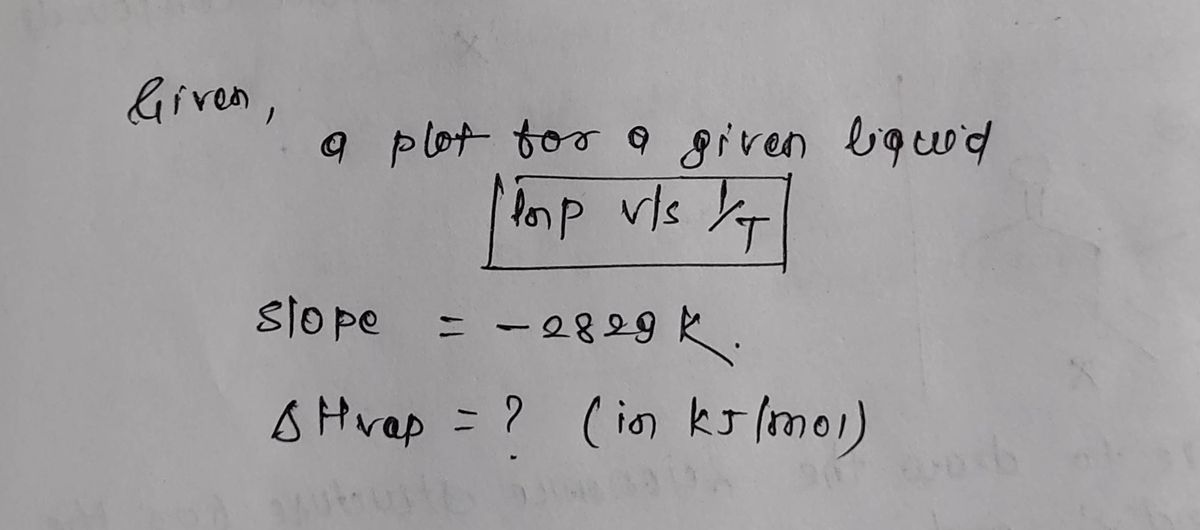 Given,
a plot for a given liquid
lnp v/s 1/T
Slope = -2829 K.
ΔHvap = ? (in kJ/mol)